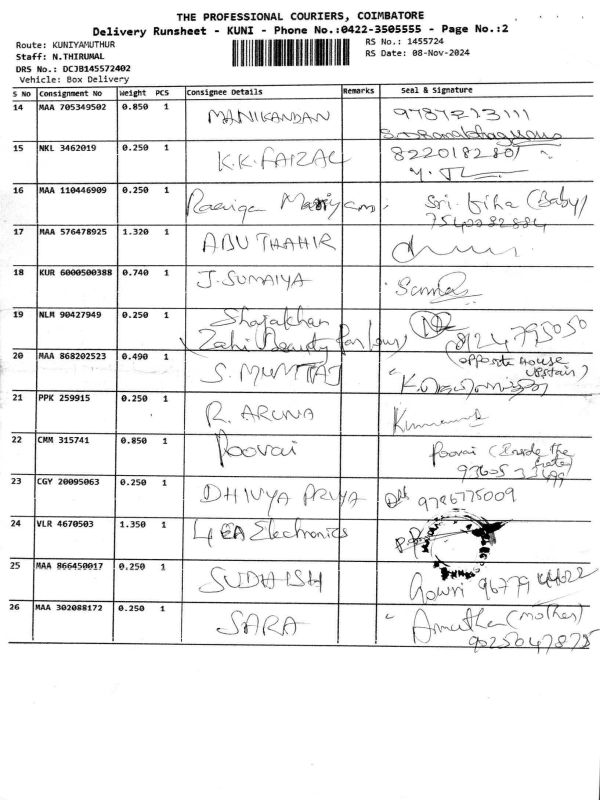 THE PROFESSIONAL COURIERS, COIMBATORE
Delivery Runsheet - KUNI - Phone No.:0422-3505555 - Page No.:2
Route: KUNIYAMUTHUR
RS No.: 1455724
Staff: N.THIRUMAL
RS Date: 08-Nov-2024
DRS No.: DCJB145572402
Vehicle: Box Delivery
S No Consignment No Weight PCS Consignee Details Remarks Seal & Signature
14 MAA 705349502 0.850 1 MANIKANDAN 9787213111
15 NKL 3462019 0.250 1 K.K.FAIZAL 8220182801
16 MAA 110446909 0.250 1 Mariyam Sri (Baby)
7540082884
17 MAA 576478925 1.320 1 ABUTHAHIR
18 KUR 6000500388 0.740 1 J.SUMAIYA
19 NLM 90427949 0.250 1 Shajakhan 8124795050
Zahi Beauty Parlour (opposite House
upstair)
20 MAA 868202523 0.490 1 S. MUMTAJ
21 PPK 259915 0.250 1 R. ARUNA
22 CMM 315741 0.850 1 Poovai Poovai (Inside the
23 CGY 20095063 0.250 1 DHIVYA PRIYA 9786775009
24 VLR 4670503 1.350 1 Electronics
25 MAA 866450017 0.250 1 SUDHISH Gowri 9677944622
26 MAA 302088172 0.250 1 SARA Amutha (mother)
9025047875